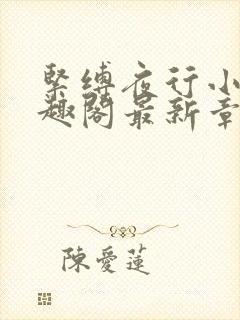 緊縛夜行小
趣閣最新章
陳愛蓮